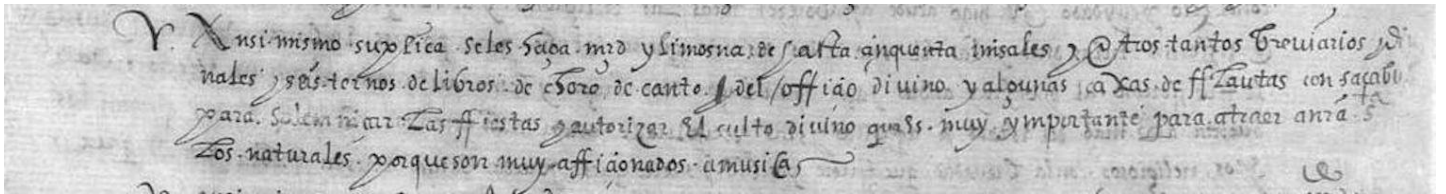 V. Ansi mismo suplica se les haga mrd y limosna de hasta çinquenta misales y otros tantos breviarios, di
nales y seis ternos de libros de choro de canto y del officio divino y algunas caxas de fflautas con sacabu
para solemniçar las ffiestas y autorizar el culto divino ques muy ymportante para atraer a nrã stã
los naturales porque son muy afficionados a musica